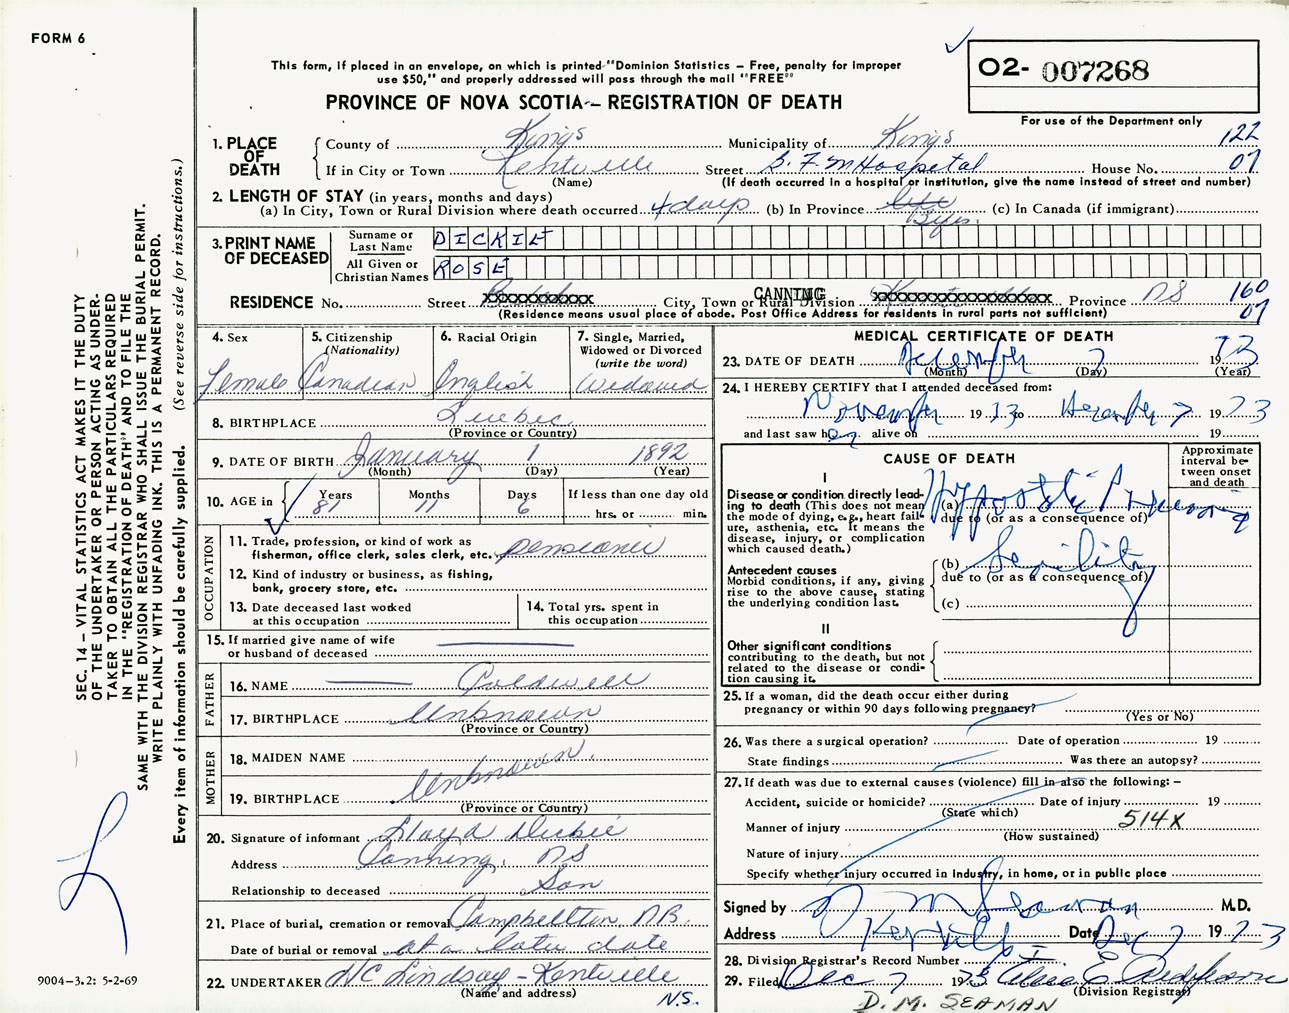 FORM 6
This form, if placed in an envelope, on which is printed "Dominion Statistics – Free, penalty for improper
use $50," and properly addressed will pass through the mail "FREE"
PROVINCE OF NOVA SCOTIA – REGISTRATION OF DEATH
02- 007268
For use of the Department only
1. PLACE OF DEATH
County of Kings Municipality of Kings 122
If in City or Town Kentville Street B. F. M Hospital House No. 07
(Name) (If death occurred in a hospital or institution, give the name instead of street and number)
2. LENGTH OF STAY (in years, months and days)
(a) In City, Town or Rural Division where death occurred 4 days (b) In Province life (c) In Canada (if immigrant)
3. PRINT NAME OF DECEASED
Surname or Last Name DICKIE
All Given or Christian Names ROSE
RESIDENCE No. Street xxxxxxxxxxx City, Town or Rural Division CANNING xxxxxxxxxxxxxxxxxx Province NS 160
(Residence means usual place of abode. Post Office Address for residents in rural parts not sufficient) 07
4. Sex
Female
5. Citizenship
(Nationality)
Canadian
6. Racial Origin
English
7. Single, Married,
Widowed or Divorced
(write the word)
Widowed
8. BIRTHPLACE Quebec
(Province or Country)
9. DATE OF BIRTH January 1 1892
(Month) (Day) (Year)
10. AGE in Years Months Days If less than one day old
81 11 6 hrs. or min.
OCCUPATION
11. Trade, profession, or kind of work as
fisherman, office clerk, sales clerk, etc. pensioner
12. Kind of industry or business, as fishing,
bank, grocery store, etc.
13. Date deceased last worked
at this occupation
14. Total yrs. spent in
this occupation
15. If married give name of wife
or husband of deceased
FATHER
16. NAME Coldwell
17. BIRTHPLACE Unknown
(Province or Country)
MOTHER
18. MAIDEN NAME
Unknown.
19. BIRTHPLACE
(Province or Country)
20. Signature of informant Lloyd Dickie
Address Canning, NS
Relationship to deceased Son
21. Place of burial, cremation or removal Campbellton N.B.
Date of burial or removal at a later date
22. UNDERTAKER W C Lindsay - Kentville
(Name and address) N.S.
MEDICAL CERTIFICATE OF DEATH
23. DATE OF DEATH December 7 1973
(Month) (Day) (Year)
24. I HEREBY CERTIFY that I attended deceased from:
November 19 73 to December 7 1973
and last saw her alive on 19
CAUSE OF DEATH
Approximate
interval be-
tween onset
and death
I
Disease or condition directly lead-
ing to death (This does not mean
the mode of dying, e.g., heart fail-
ure, asthenia, etc. It means the
disease, injury, or complication
which caused death.)
(a) Hypostatic Pneumonia
due to (or as a consequence of)
Antecedent causes
Morbid conditions, if any, giving
rise to the above cause, stating
the underlying condition last.
(b) Senility
due to (or as a consequence of)
(c)
II
Other significant conditions
contributing to the death, but not
related to the disease or condi-
tion causing it.
25. If a woman, did the death occur either during
pregnancy or within 90 days following pregnancy?
(Yes or No)
26. Was there a surgical operation? Date of operation 19
State findings Was there an autopsy?
27. If death was due to external causes (violence) fill in also the following: –
Accident, suicide or homicide? Date of injury 19
(State which)
Manner of injury 514X
(How sustained)
Nature of injury
Specify whether injury occurred in Industry, in home, or in public place
Signed by D M Seaman M.D.
Address Kentville Date Dec 7 1973
28. Division Registrar's Record Number
29. Filed Dec 7 1973
(Division Registrar)
D. M. SEAMAN
SEC. 14 – VITAL STATISTICS ACT MAKES IT THE DUTY
OF THE UNDERTAKER OR PERSON ACTING AS UNDER-
TAKER TO OBTAIN ALL THE PARTICULARS REQUIRED
IN THE "REGISTRATION OF DEATH" AND TO FILE THE
SAME WITH THE DIVISION REGISTRAR WHO SHALL ISSUE THE BURIAL PERMIT.
WRITE PLAINLY WITH UNFADING INK. THIS IS A PERMANENT RECORD.
Every item of information should be carefully supplied. (See reverse side for instructions.)
9004–3.2: 5-2-69